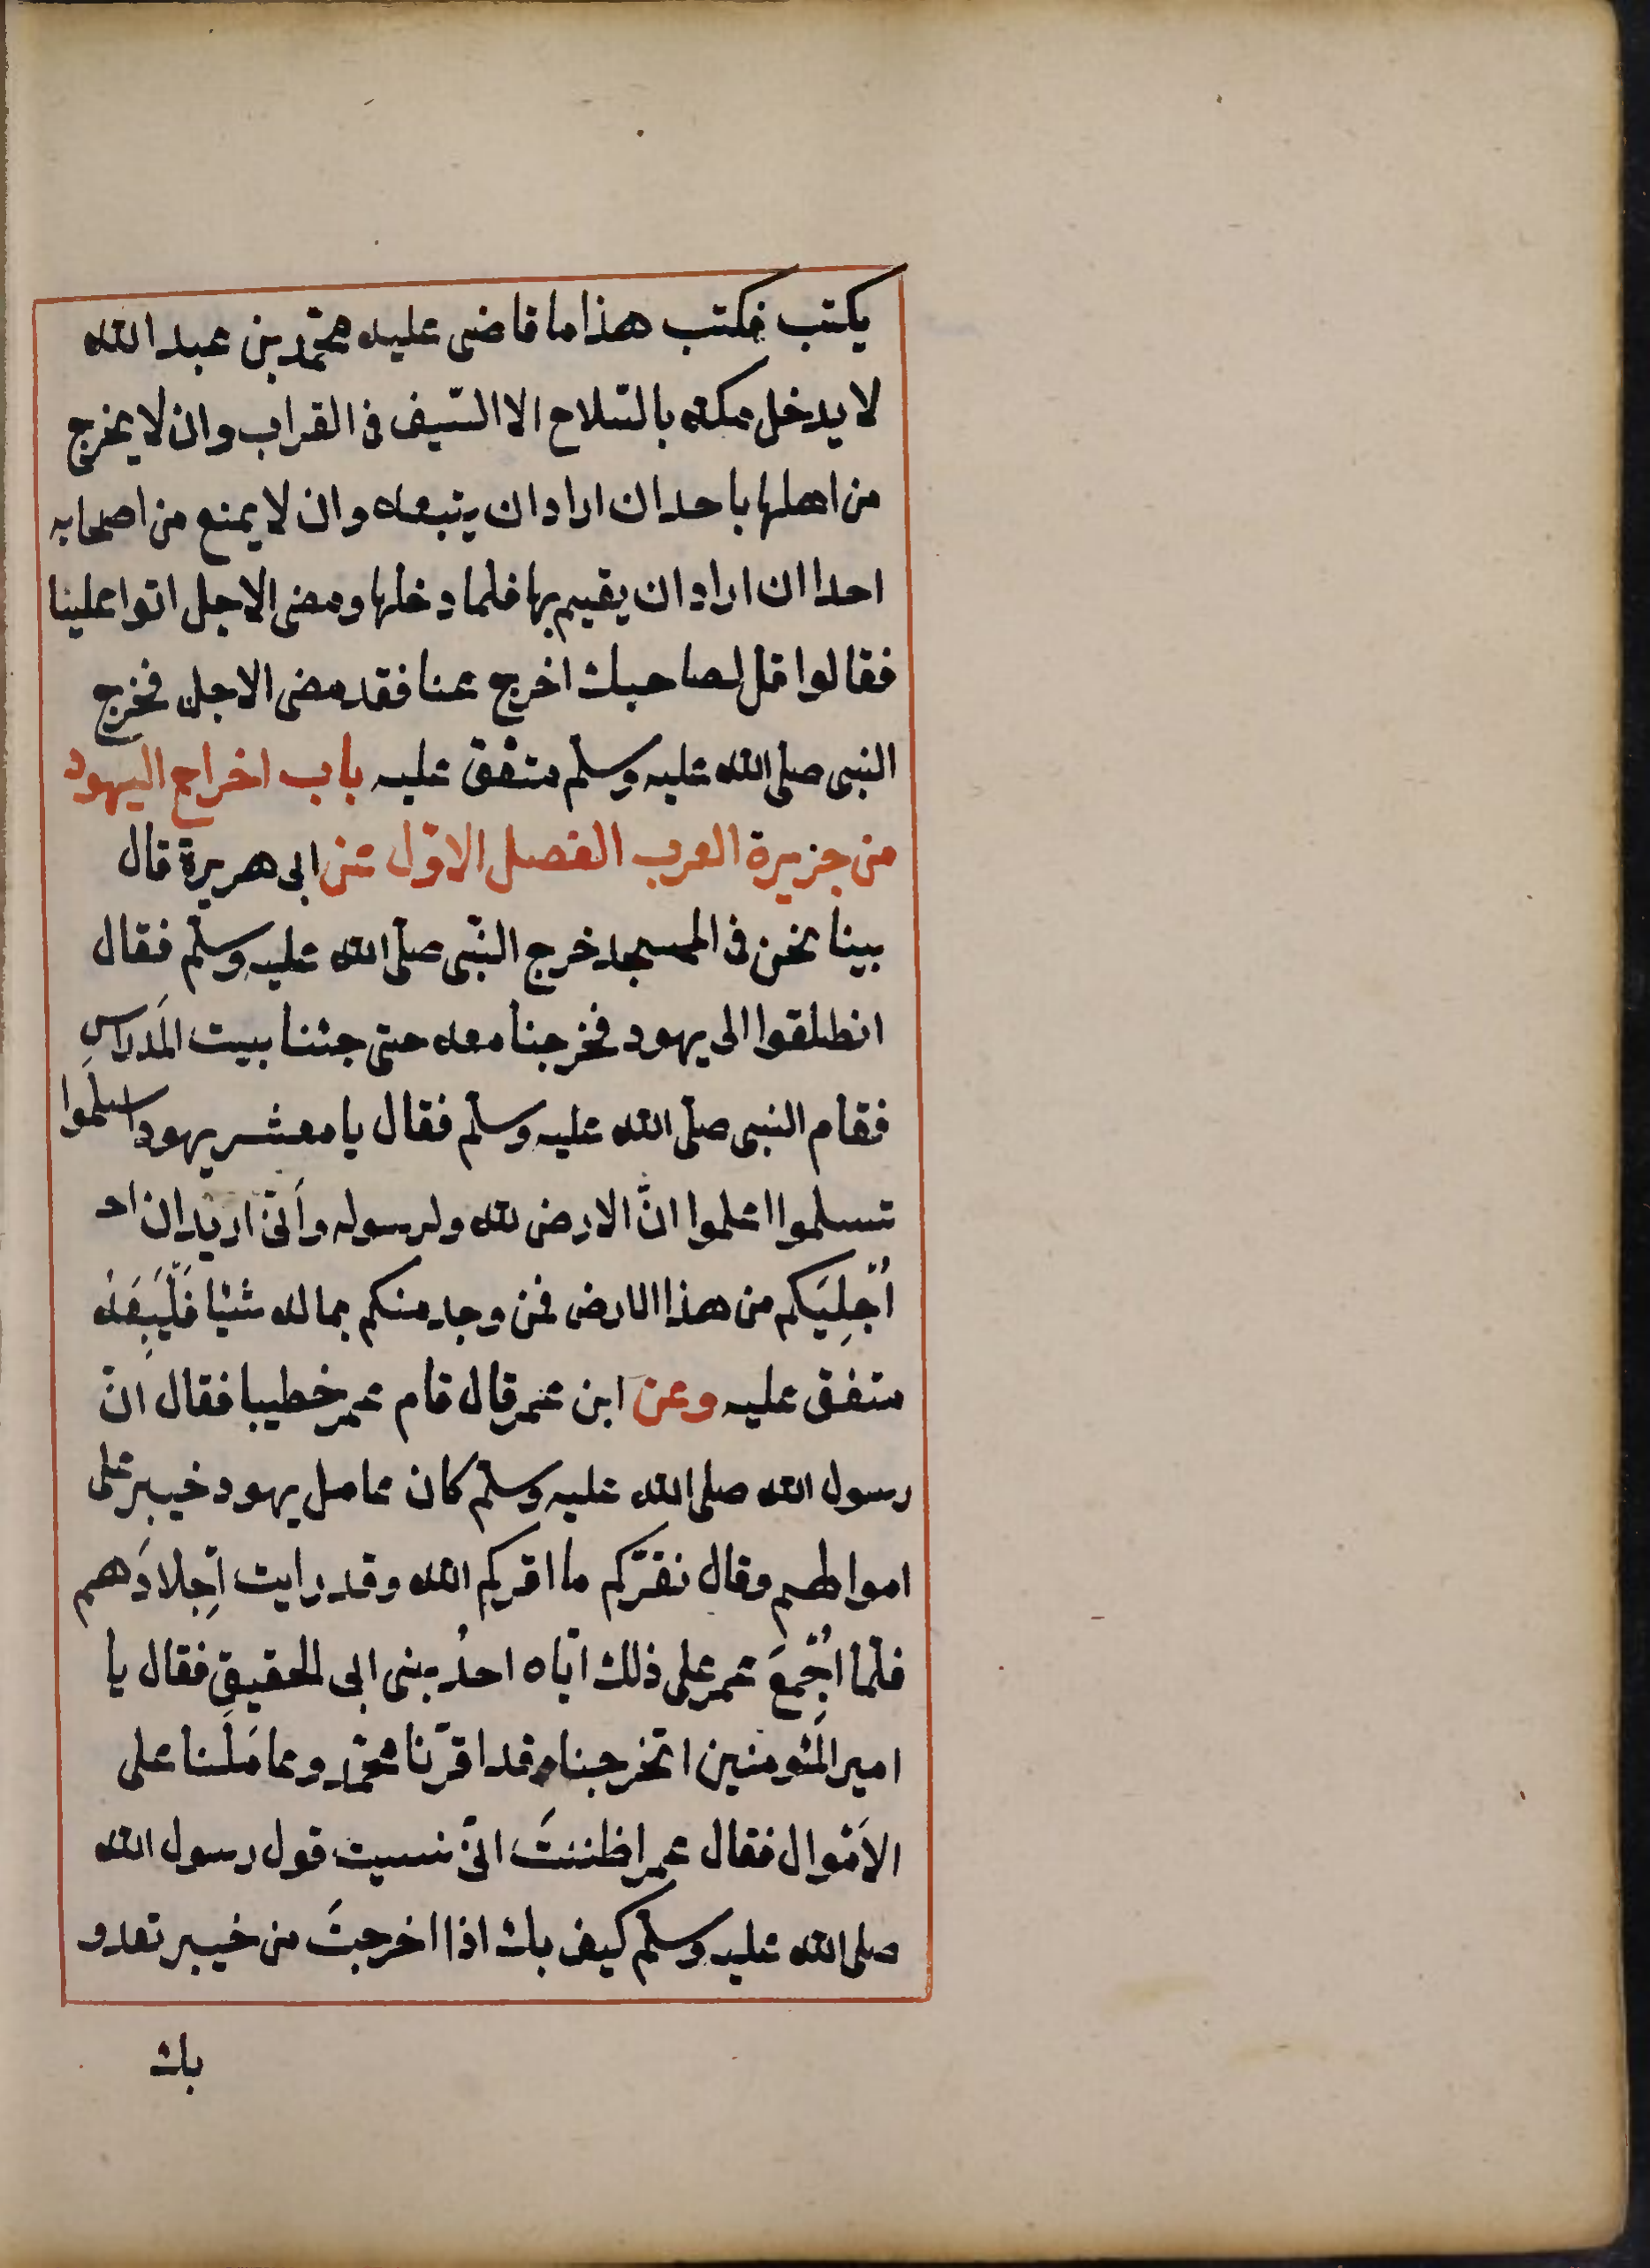 يكتب فكتب هذا ما قاضى عليه محمّد بن عبد الله
لا يدخل مكة بالسّلاح الا السّيف فى القراب وان لا يخرج
من اهلها باحد ان اراد ان يتبعه وان لا يمنع من اصحابه
احدا ان اراد ان يقيم بها فلما دخلها ومضى الاجل اتوا علينا
فقالوا قل لصاحبك اخرج عنا فقد مضى الاجل فخرج
النبى صلى الله عليه وسلّم متفق عليه باب اخراج اليهود
من جزيرة العرب الفصل الاوّل عن ابى هريرة قال
بينا نحن فى المسجد خرج النّبى صلّى الله عليه وسلّم فقال
انطلقوا الى يهود فخرجنا معه حتى جئنا بيت المَدراسِ
فقام النبى صلّى الله عليه وسلّم فقال يا معشر يهود اسلموا
تسلموا اعلموا انّ الارض لله ولرسوله وأنّى اريد ان اد
اُجْلِيَكم من هذا الارض فمن وجد منكم بماله شئيا فَلْيَبِعْهُ
متفق عليه وعن ابن عمر قال قام عمر خطيبا فقال انّ
رسول الله صلى الله عليه وسلّم كان عامل يهود خيبر على
اموالهم وقال نقرّكم ما اقركم الله وقد رايت اَجِلادَهم
فلمّا اُجْمِعَ عمر على ذلك اتاه احدُ بنى ابى الحقيقِ فقال يا
امير المئومنين اتخرجنا وقد اقرّنا محمّد وعامَلَنا على
الاَمْوال فقال عمر اظننتَ انّى نسيت قول رسول الله
صلى الله عليه وسلّم كيف بك اذا اخرجتَ من خيبر تعدو
بك